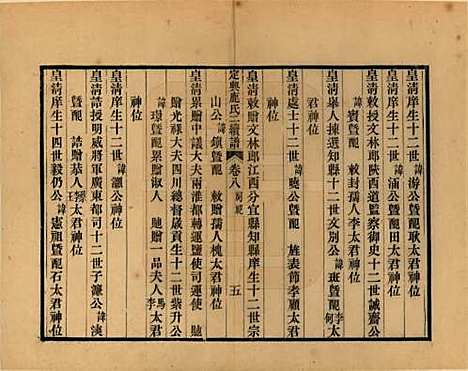 皇清庠生十二世諱游公暨配耿太君神位
皇清敕授文林郎陝西道監察御史十二世誠齋公
諱賓公暨配敕封孺人李太君神位
皇清庠生十二世諱涵公暨配田太君神位
皇清舉人揀選知縣十二世文別公諱班暨配李何太
君神位
皇清處士十二世曉公暨配旌表節孝顧太君神位
皇清敕贈文林郎江西分宜縣知縣庠生十二世宗
定興鹿氏二續譜 卷八 祠祀 五
山公諱鎮暨配敕贈孺人槐太君神位
皇清累贈中議大夫兩淮都轉運鹽使司運使貤
贈光祿大夫四川總督歲貢生十二世紫升公
諱璟暨配累贈淑人貤贈一品夫人馬李太君
神位
皇清庠生十二世諱灝公神位
皇清誥授明威將軍廣東都司十二世子濂公諱浹
暨配誥贈恭人王太君神位
皇清庠生十四世毅仍公諱憲祖暨配石太君神位